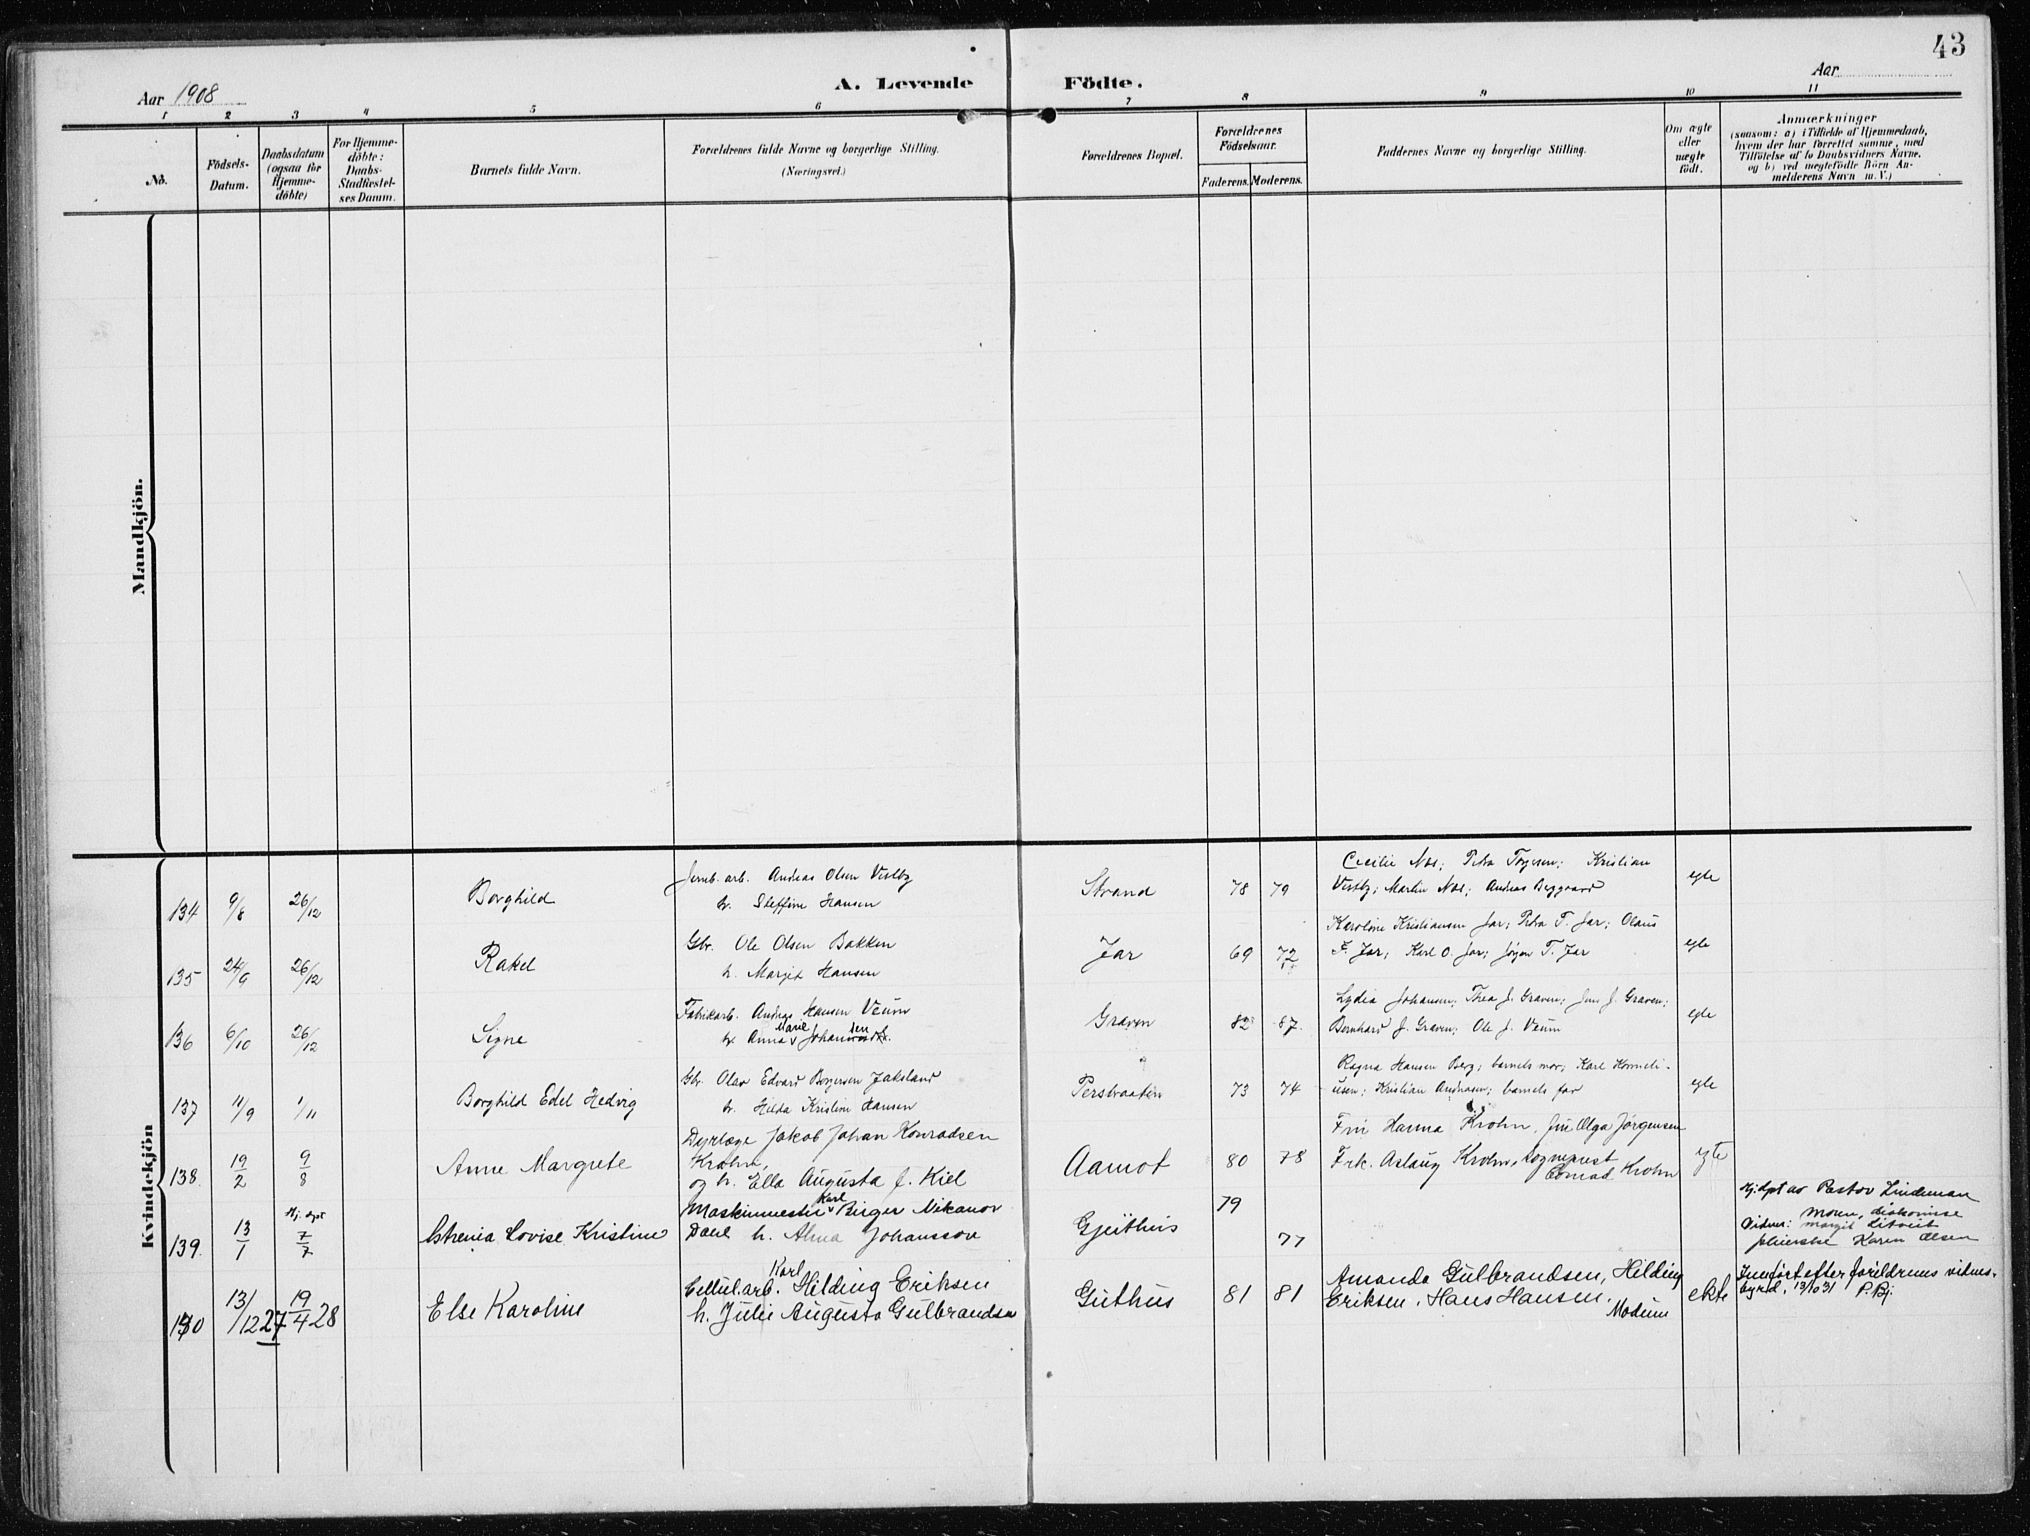 43
Aar 1908
A. Levende Födte.
Aar
1 2 3 4 5 6 7 8 9 10 11
No.
Födsels-
Datum.
Daabsdatum
(ogsaa for
Hjemme-
döbte)
For Hjemme-
döbte:
Daabs-
Stadfæstel-
ses Datum.
Barnets fulde Navn.
Forældrenes fulde Navne og borgerlige Stilling.
(Næringsvei.)
Forældrenes Bopæl.
Forældrenes
Födselsaar.
Faderens. Moderens.
Faddernes Navne og borgerlige Stilling.
Om ægte
eller
uægte
födt.
Anmærkninger
(saasom: a) i Tilfælde af Hjemmedaab,
hvem der har forrettet samme, med
Tilföielse af to Daabsvidners Navne,
og b) ved uægtefödte Börn An-
melderens Navn m. V.)
Mandkjön.
Kvindekjön
134 9/8 26/12 Borghild
Jernb. arb. Andreas Olsen Vestby
h. Steffine Hansen
Strand 78 79
Cecilie Næs; Petra Torgersen; Kristian
Vestby; Martin Næs; Andreas Byggaard
egte
135 24/9 26/12 Rakel
Gbr. Ole Olsen Bakken
h. Margit Hansen
Jar 69 72
Karoline Kristiansen Jar; Petra F. Jar; Olaus
F. Jar; Karl O. Jar; Jørgen T. Jar
egte
136 6/10 26/12 Signe
Fabrikarb. Andreas Hansen Veum
h. Anna Marie
Graven 82 87.
Lydia Johansen; Thea J. Graven; Jens J. Graven;
Bernhard J. Graven; Ole J. Veum
egte
137 11/9 1/11 Borghild Edel Hedvig
Gbr. Olav Edvard Borgersen Jaksland
h. Hilda Kristine Hansen
Persbraaten 73 74
Ragna Hansen Berg; barnets mor; Karl Korneli-
usen; Kristian Andresen; barnets far
egte
138. 19/2 9/8 Anne Margrete
Dyrlæge Jakob Johan Konradsen
Krohn,
og h. Ella Augusta f. Kiel
Aamot 80 78
Fru Hanna Krohn, fru Olga Jørgensen
Frk. Aslaug Krohn, Sogneprest
Conrad Krohn
egte
139. 13/1 Hj. døpt 7/7 Lovise Kristine
Maskinmester Karl Birger Nikanor
Dahl h. Alma Johansson
Gjeithus 79 77
Hj. døpt av Pastor Lindeman
Vidner: Moren, diakonisse
Margit Litveit
pleierske Karen Olsen
140 13/12 27 19/4 28 Else Karoline
Cellul.arb. Karl Hilding Eriksen
h. Julie Augusta Gulbrandsen
Guthus 81 81
Amanda Gulbrandsen, Hilding
Eriksen. Hans Hansen.
Modum
ekte
Innført efter foreldrenes vidnes-
byrd. 13/10 31 P. Bj.